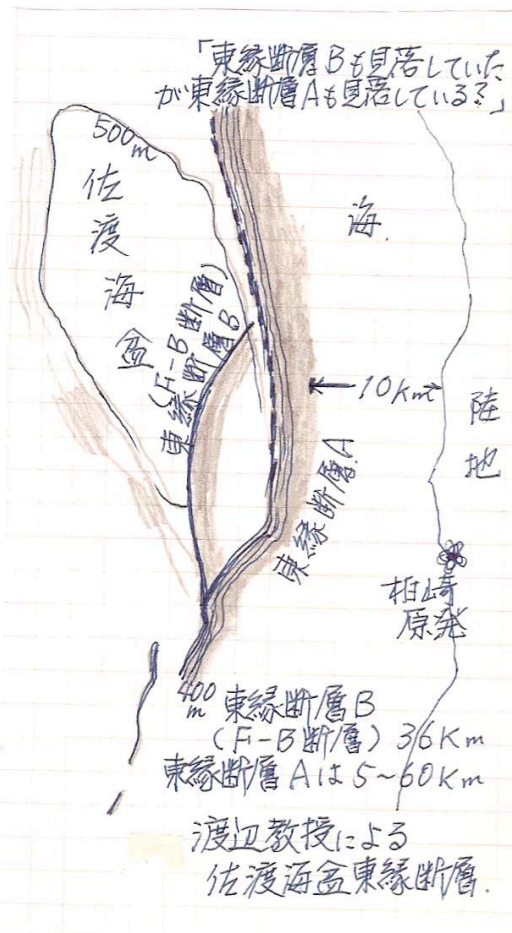 「東縁断層Bも見落していた
が東縁断層Aも見落している?」
500m
佐渡海盆
海.
(F-B断層)
東縁断層B
10Km
陸地
東縁断層A
柏崎
原発
400m
東縁断層B
(F-B断層) 36Km
東縁断層Aは5~60Km
渡辺教授による
佐渡海盆東縁断層.